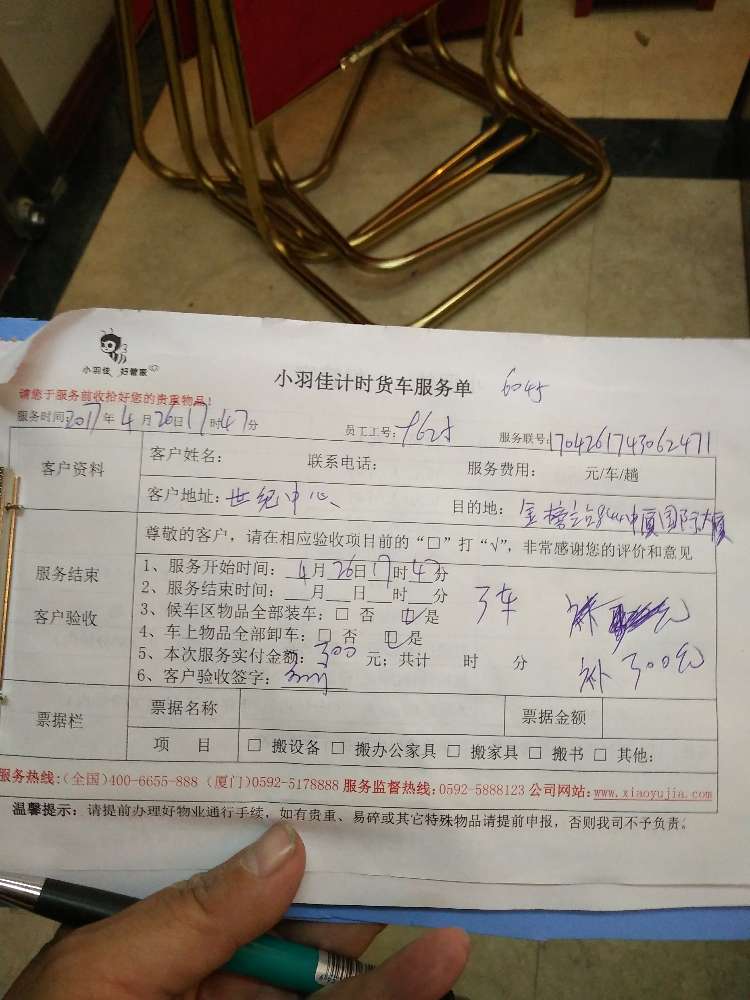 小羽佳 好管家
小羽佳计时货车服务单 6045
请您于服务前收拾好您的贵重物品!
服务时间:2017年4月26日17时47分 员工工号: 服务联号:1704261743062471
客户资料
客户姓名: 联系电话: 服务费用: 元/车/趟
客户地址:世纪中心 目的地:金榜 国际大厦
服务结束
客户验收
尊敬的客户,请在相应验收项目前的“□”打“√”,非常感谢您的评价和意见
1、服务开始时间:4月26日17时47分
2、服务结束时间:___月___日___时___分
3、候车区物品全部装车:□ 否 ☑是
3车
4、车上物品全部卸车:□ 否 ☑是
5、本次服务实付金额:300元;共计 时 分
补300元
6、客户验收签字:
票据栏
票据名称 票据金额
项 目 □ 搬设备 □ 搬办公家具 □ 搬家具 □ 搬书 □ 其他:
服务热线:(全国)400-6655-888 (厦门)0592-5178888 服务监督热线:0592-5888123 公司网站:www.xiaoyujia.com
温馨提示:请提前办理好物业通行手续,如有贵重、易碎或其它特殊物品请提前申报,否则我司不予负责。